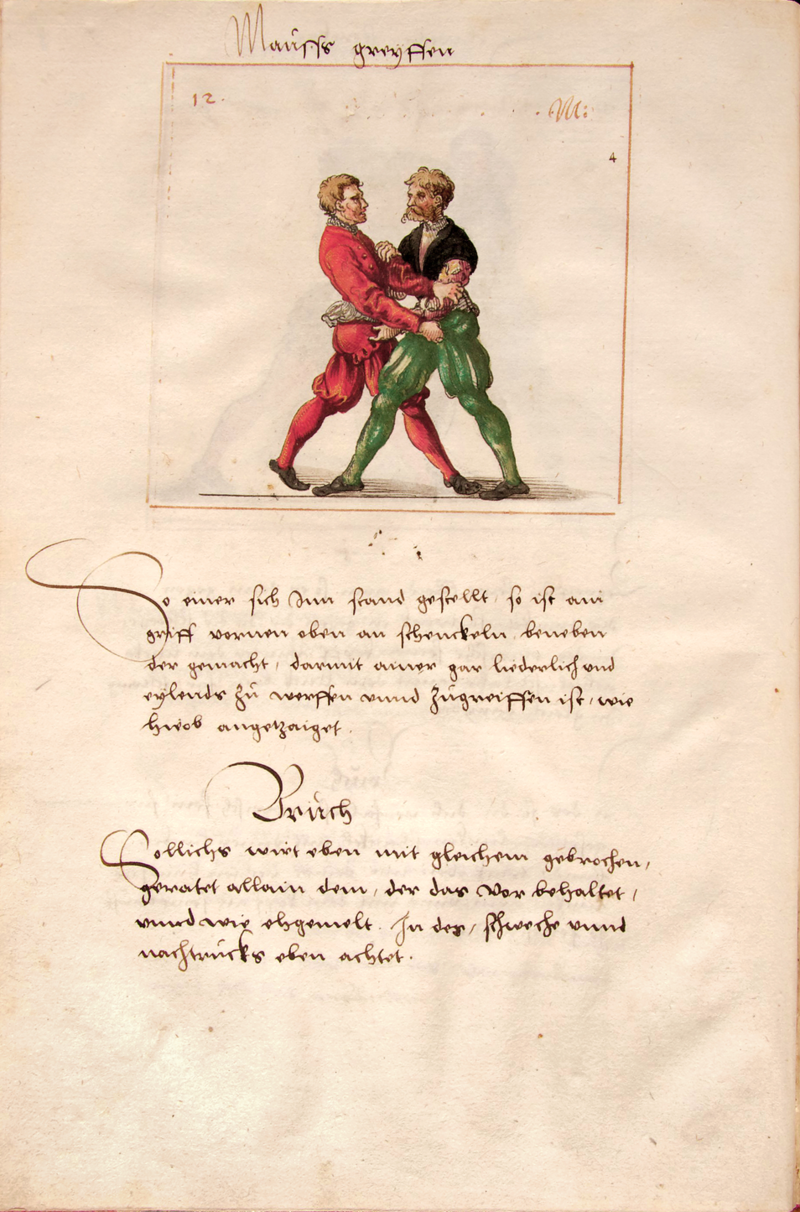 Mauss greyffen
12.
M:
4
So einer sich Inn stand gestellt, so ist ain
griff vornen oben an schenckeln, beneben
der gemacht, darmit ainer gar liederlich und
eylends zů werffen unnd zůgreiffen ist, wie
hieob angetzaiget.
Brůch
Sollichs wirt eben mit gleichem gebrochen,
geratet allain dem, der das Vor behaltet,
unnd wie ehgemelt. In des, schweche unnd
nachtrucks eben achtet.